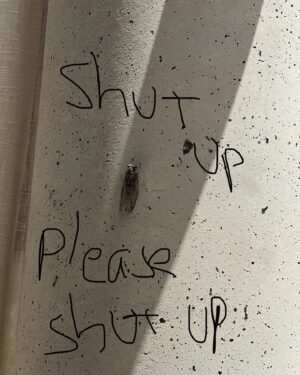 Shut
Up
Please
shut up